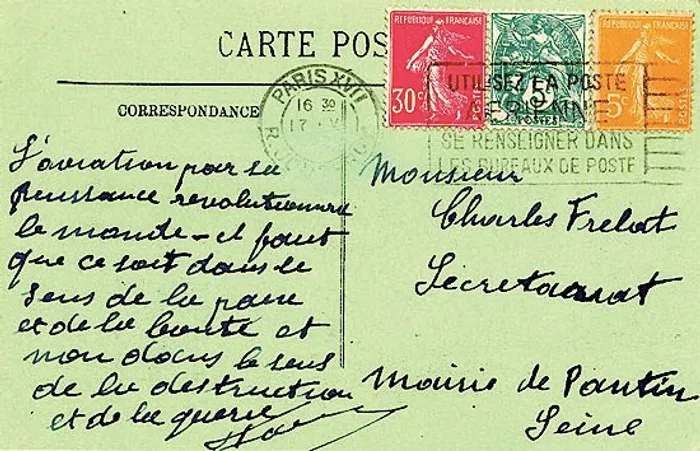 CARTE POS
CORRESPONDANCE
REPUBLIQUE FRANÇAISE
30c
POSTES
5c
POSTES
REPUBLIQUE FRANÇAISE
5c
POSTES
PARIS XVII
16 30
17
UTILISEZ LA POSTE
AERIENNE
SE RENSEIGNER DANS
LES BUREAUX DE POSTE
L'aviation par sa
puissance revolutionnera
le monde - il faut
que ce soit dans le
sens de la paix
et de la bonté et
non dans le sens
de la destruction
et de la guerre
Monsieur
Charles Frelat
Secretariat
Mairie de Pantin
Seine